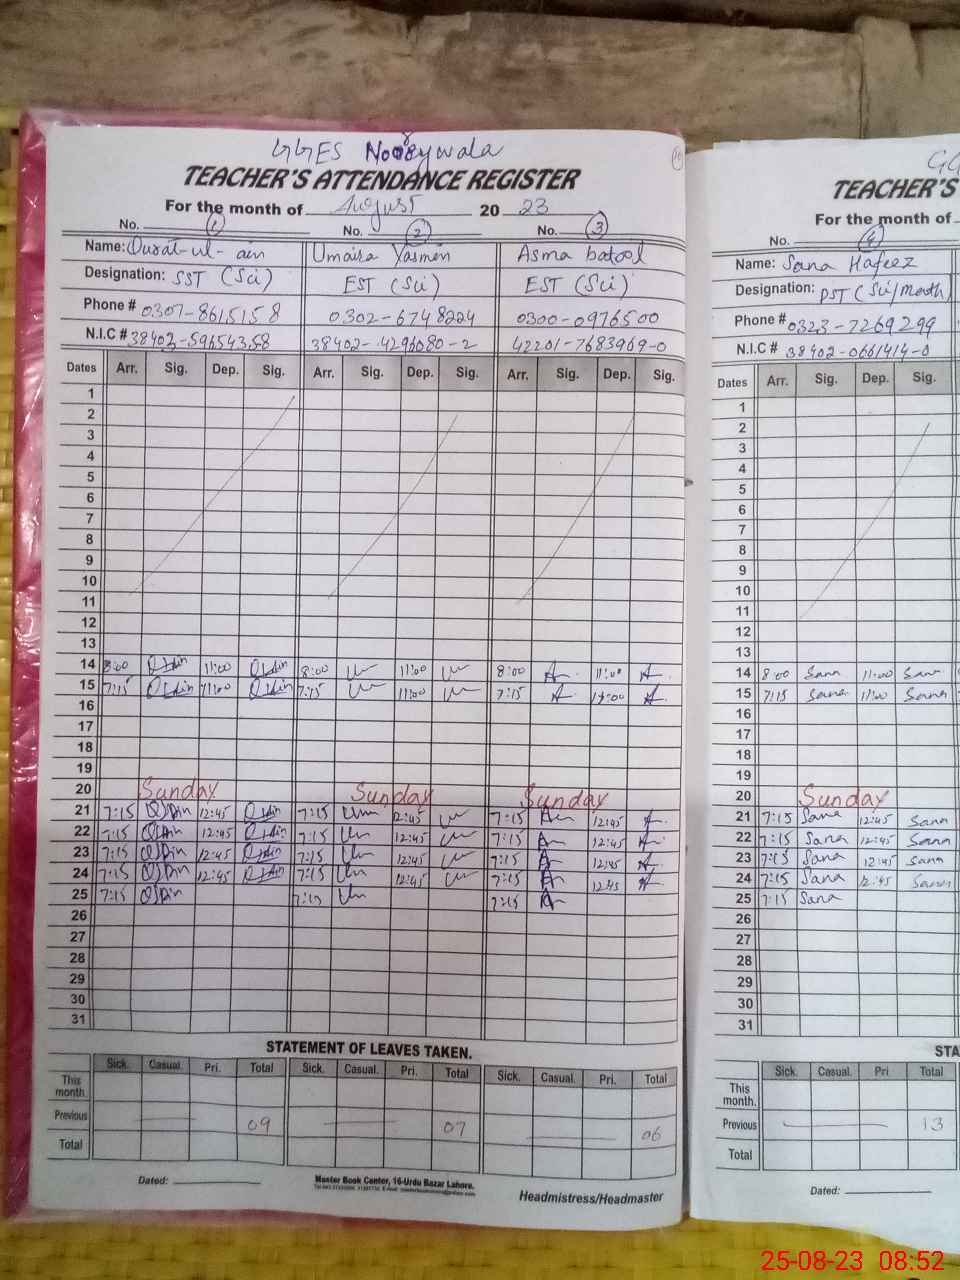 GGES Noorywala
TEACHER'S ATTENDANCE REGISTER
For the month of August 2023
No. 1 No. 2 No. 3
Name: Qurat-ul-ain Umaira Yasmen Asma batool
Designation: SST (Sci) EST (Sci) EST (Sci)
Phone # 0307-8615158 0302-6748224 0300-0976500
N.I.C # 38403-59654358 38402-4296080-2 42201-7683969-0
Dates Arr. Sig. Dep. Sig. Arr. Sig. Dep. Sig. Arr. Sig. Dep. Sig.
1
2
3
4
5
6
7
8
9
10
11
12
13
14 8:00 11:00 8:00 11:00 8:00 11:00
15 7:15 11:00 7:15 11:00 7:15 11:00
16
17
18
19
20 Sunday Sunday Sunday
21 7:15 12:45 7:15 12:45 7:15 12:45
22 7:15 12:45 7:15 12:45 7:15 12:45
23 7:15 12:45 7:15 12:45 7:15 12:45
24 7:15 12:45 7:15 12:45 7:15 12:45
25 7:15 7:15 7:15
26
27
28
29
30
31
STATEMENT OF LEAVES TAKEN.
Sick. Casual. Pri. Total Sick. Casual. Pri. Total Sick. Casual. Pri. Total
This month.
Previous 09 07 06
Total
Dated:
Master Book Center, 16-Urdu Bazar Lahore.
Headmistress/Headmaster
TEACHER'S
For the month of
No. 4
Name: Sana Hafeez
Designation: PST (Sci/Math)
Phone # 0323-7269299
N.I.C # 38402-0661414-0
Dates Arr. Sig. Dep. Sig.
1
2
3
4
5
6
7
8
9
10
11
12
13
14 8:00 Sana 11:00 Sana
15 7:15 Sana 11:00 Sana
16
17
18
19
20 Sunday
21 7:15 Sana 12:45 Sana
22 7:15 Sana 12:45 Sana
23 7:15 Sana 12:45 Sana
24 7:15 Sana 12:45 Sana
25 7:15 Sana
26
27
28
29
30
31
STA
Sick. Casual. Pri. Total
This month.
Previous 13
Total
Dated:
25-08-23 08:52